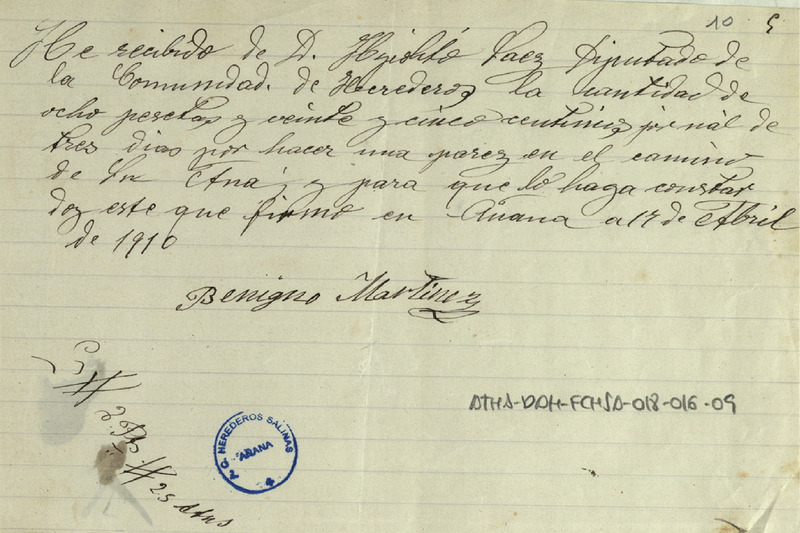 10
He recibido de D. Hipolito Saez Diputado de
la Comunidad. de Herederos la cantidad de
ocho pesetas y veinte y cinco centimos jornal de
tres dias por hacer una parez en el camino
de Sn Ana; y para que lo haga constar
doy este que firmo en Añana a 17 de Abril
de 1910
Benigno Martinez
ATHA-DAH-FCHSA-018-016-09
HEREDEROS SALINAS
AÑANA
8 Pts // 25 ctms